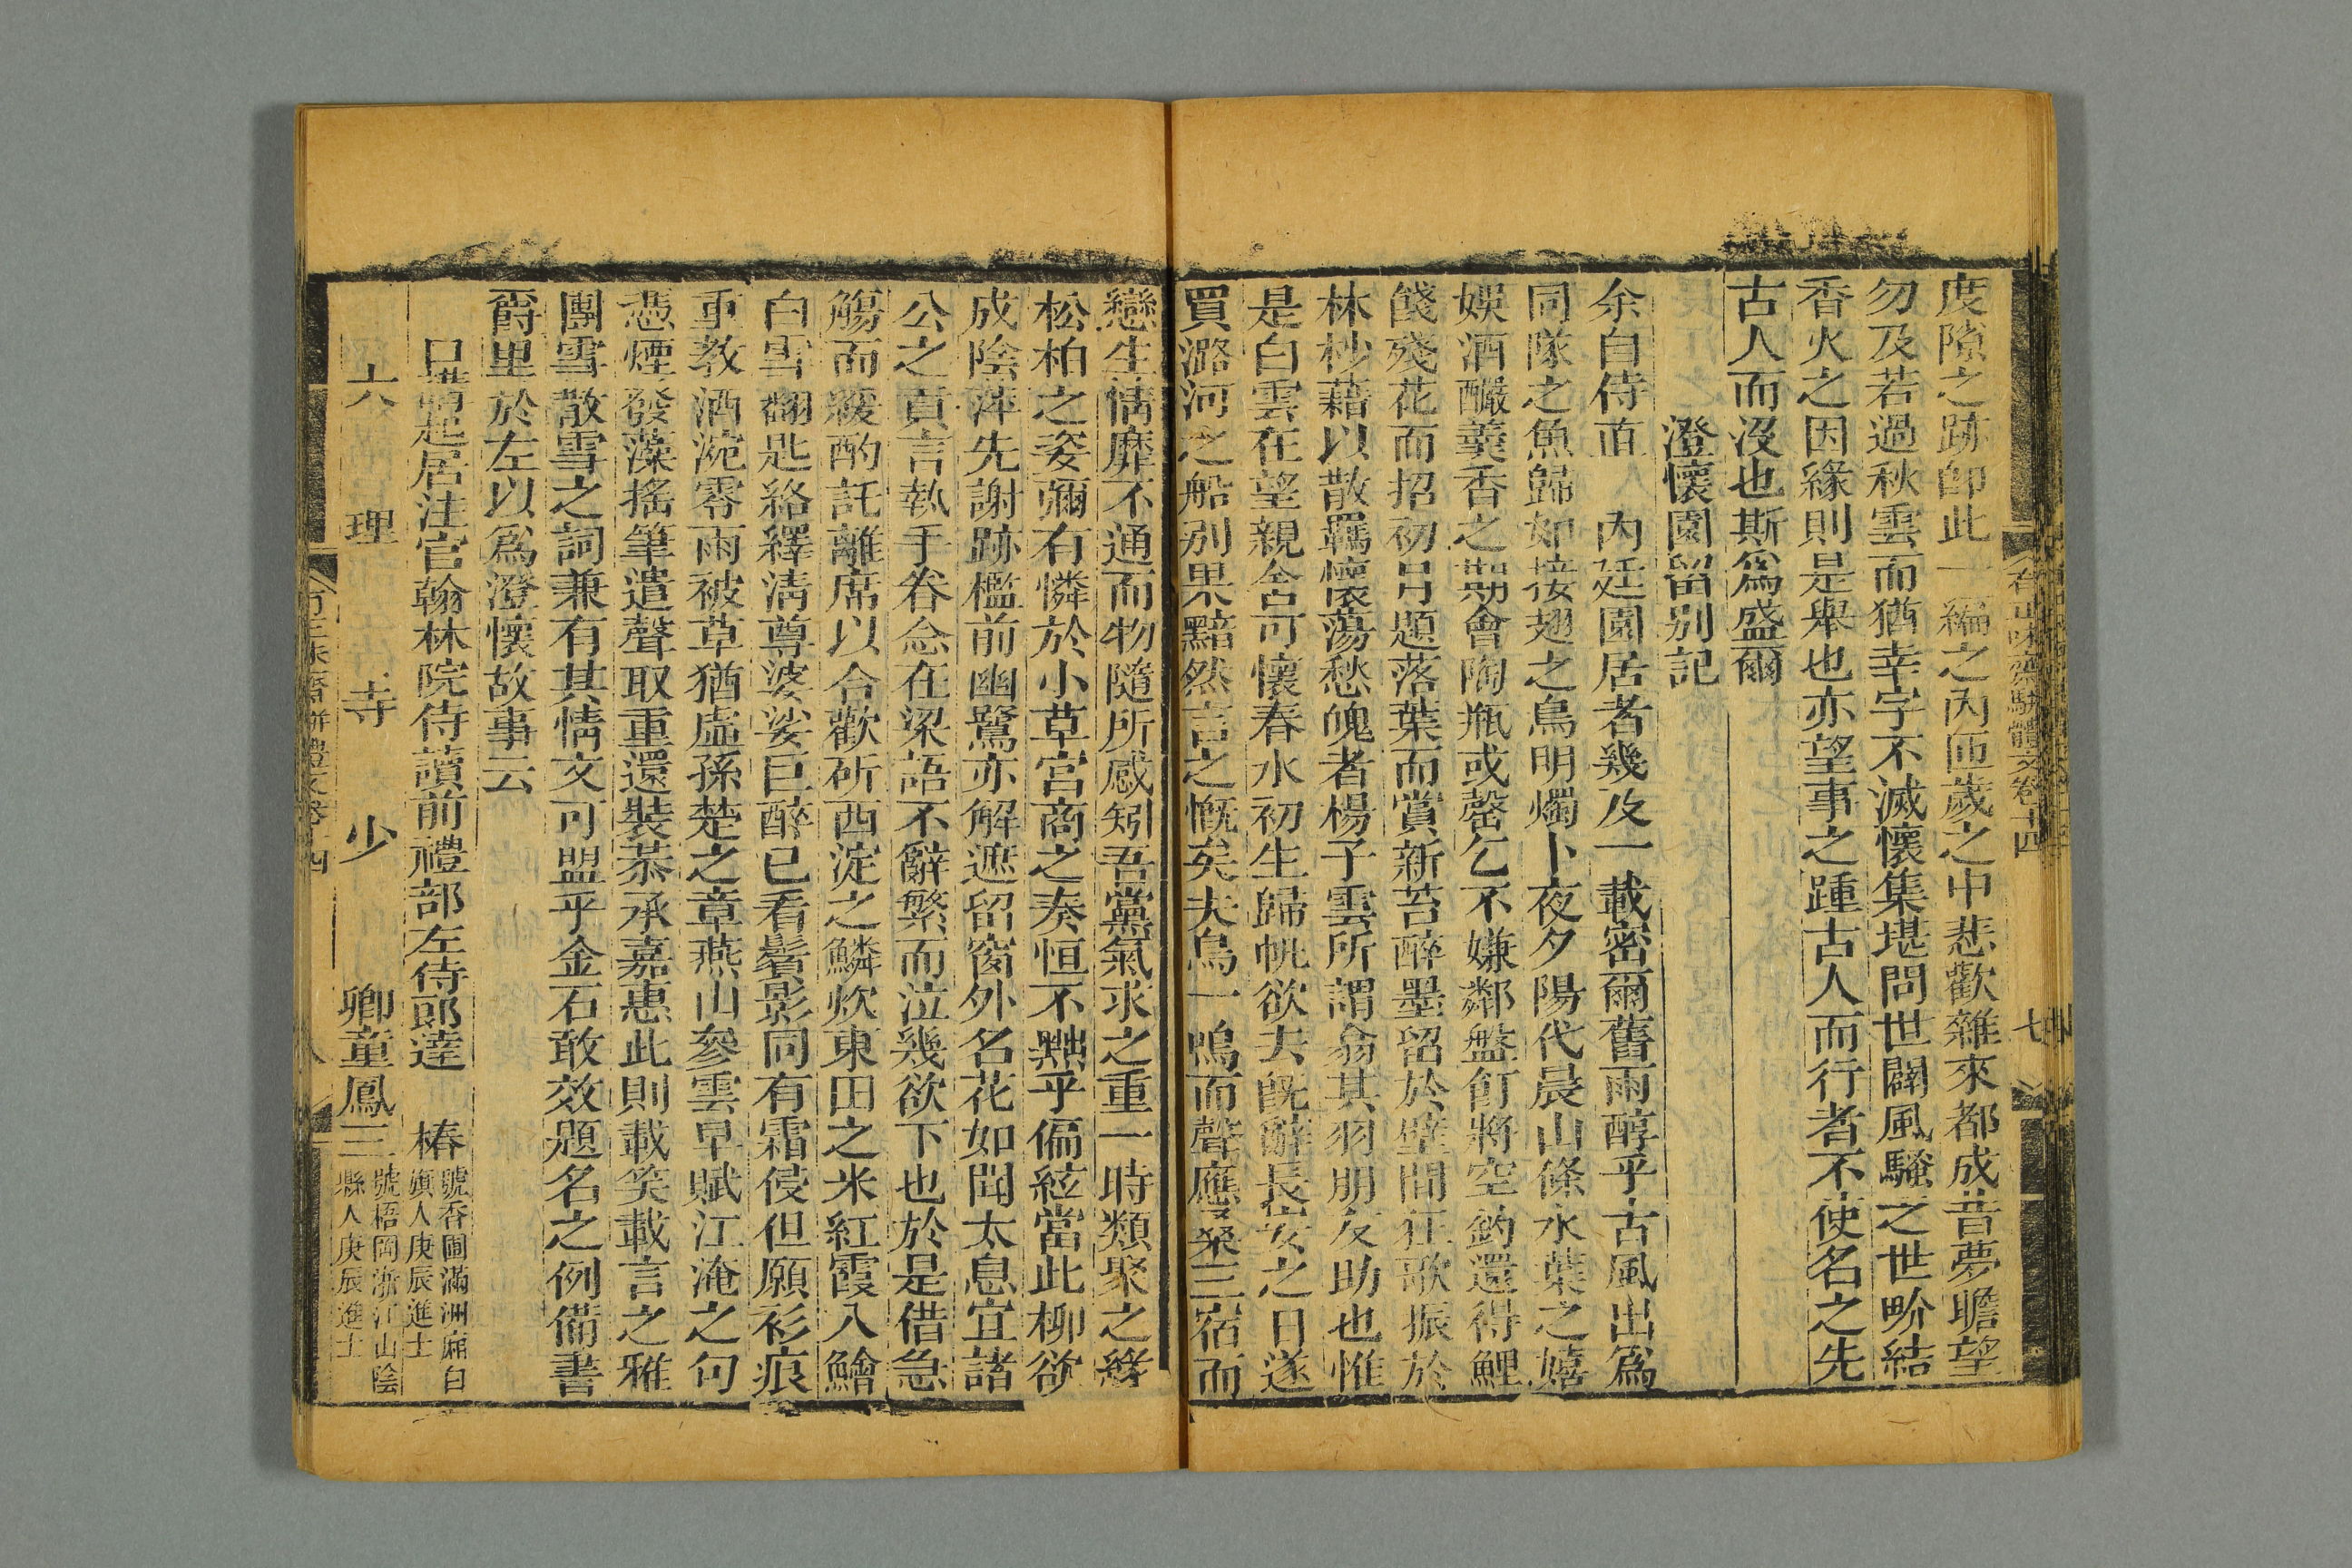 度隙之跡卽此一編之內匝歲之中悲歡雜來都成昔夢瞻望
勿及若過秋雲而猶幸字不滅懷集堪問世闢風騷之世畍結
香火之因緣則是舉也亦望事之踵古人而行者不使名之先
古人而沒也斯爲盛爾
澄懷園留别記
余自侍直 內廷園居者幾及一載密爾舊雨醇乎古風出爲
同隊之魚歸如接翅之鳥明燭卜夜夕陽代晨山條水葉之嬉
娛酒釅羹香之期會陶瓶或罄乞不嫌鄰盤飣將空釣還得鯉
餞殘花而招初月題落葉而賞新苔醉墨留於壁間狂歌振於
林杪藉以散羈懷蕩愁魄者楊子雲所謂翕其羽朋友助也惟
是白雲在望親舍可懷春水初生歸帆欲去旣辭長安之日遂
買潞河之船別果黯然言之慨矣夫鳥一鳴而聲應桑三宿而
戀生情靡不通而物隨所感矧吾黨氣求之重一時類聚之緣
松柏之姿彌有憐於小草宮商之奏恒不黜乎偏絃當此柳欲
成陰萍先謝跡檻前幽鷺亦解遮留窗外名花如聞太息宜諸
公之貢言執手眷念在梁語不辭繁而泣幾欲下也於是借急
觴而緩酌託離席以合歡斫西淀之鱗炊東田之米紅霞入鱠
白雪翻匙絡繹淸尊婆娑巨醉已看鬢影同有霜侵但願衫痕
重教酒涴零雨被草猶虛孫楚之章燕山參雲早賦江淹之句
憑煙發藻搖筆遣聲取重還裝恭承嘉惠此則載笑載言之雅
團雪散雪之詞兼有其情文可盟乎金石敢效題名之例備書
爵里於左以爲澄懷故事云
日講起居注官翰林院侍讀前禮部左侍郎達 椿 號香圃滿洲廂白
旗人庚辰進士
六理寺少卿童鳳三 號梧岡浙江山陰
縣人庚辰進士
有正味齋駢體文卷十四 七